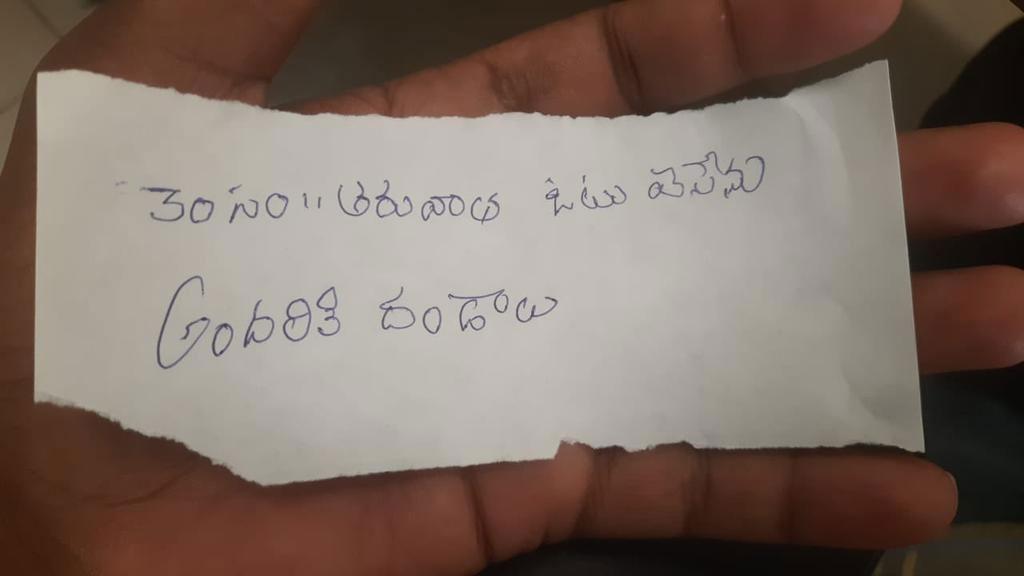 30 సం॥ తరువాత ఓటు వెసేను
అందరికి దండాలు